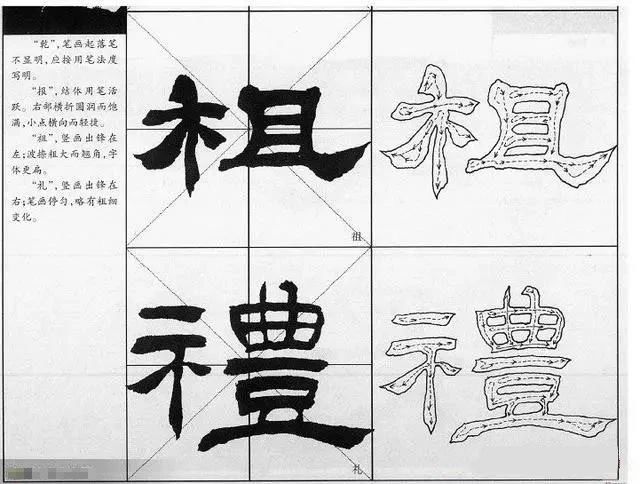 “乾”,笔画起落笔
不显明,应按用笔法度
写明。
“报”,结体用笔活
跃。右部横折圆润而饱
满,小点横向而轻捷。
“祖”,竖画出锋在
左;波捺粗大而翘角,字
体更扁。
“礼”,竖画出锋在
右;笔画停匀,略有粗细
变化。
祖 祖
祖
禮 禮
礼